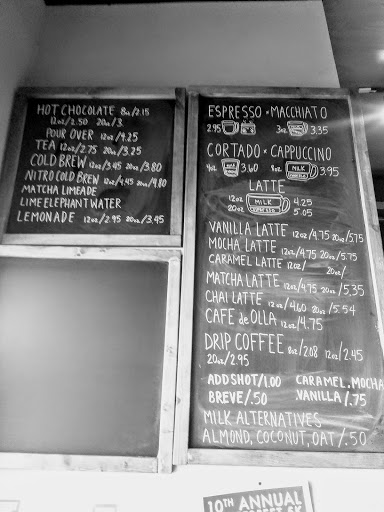 HOT CHOCOLATE 8oz/2.15
12oz/2.50 20oz/3.
POUR OVER 12oz/4.25
TEA 12oz/2.75 20oz/3.25
COLD BREW 12oz/3.45 20oz/3.80
NITRO COLD BREW 12oz/4.45 20oz/4.80
MATCHA LIMEADE
LIME ELEPHANT WATER
LEMONADE 12oz/2.95 20oz/3.45
ESPRESSO • MACCHIATO
2.95 3oz 3.35
CORTADO • CAPPUCCINO
4oz 3.60 8oz MILK 3.95
LATTE
12oz MILK 4.25
20oz ESPRESSO 5.05
VANILLA LATTE 12oz/4.75 20oz/5.75
MOCHA LATTE 12oz/4.75 20oz/5.75
CARAMEL LATTE 12oz/ 20oz/
MATCHA LATTE 12oz/4.75 20oz/5.35
CHAI LATTE 12oz/4.60 20oz/5.54
CAFE de OLLA 12oz/4.75
DRIP COFFEE 8oz/2.08 12oz/2.45
20oz/2.95
ADD SHOT/1.00 CARAMEL.MOCHA
BREVE/.50 .VANILLA/.75
MILK ALTERNATIVES
ALMOND, COCONUT, OAT/.50
10TH ANNUAL
5K